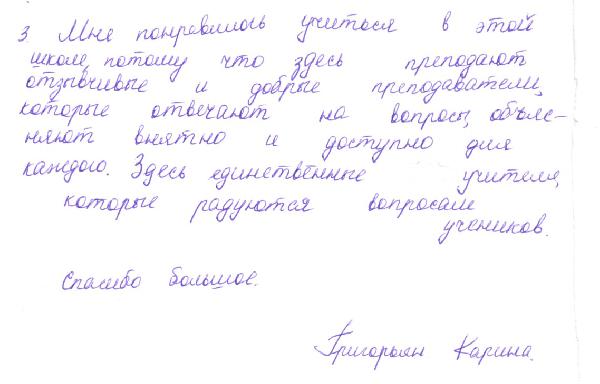 3 Мне понравилось учиться в этой
школе, потому что здесь преподают
отзывчивые и добрые преподаватели,
которые отвечают на вопросы, объяс-
няют внятно и доступно для
каждого. Здесь единственные учителя,
которые радуются вопросам
учеников.
Спасибо большое.
Григорьян Карина.